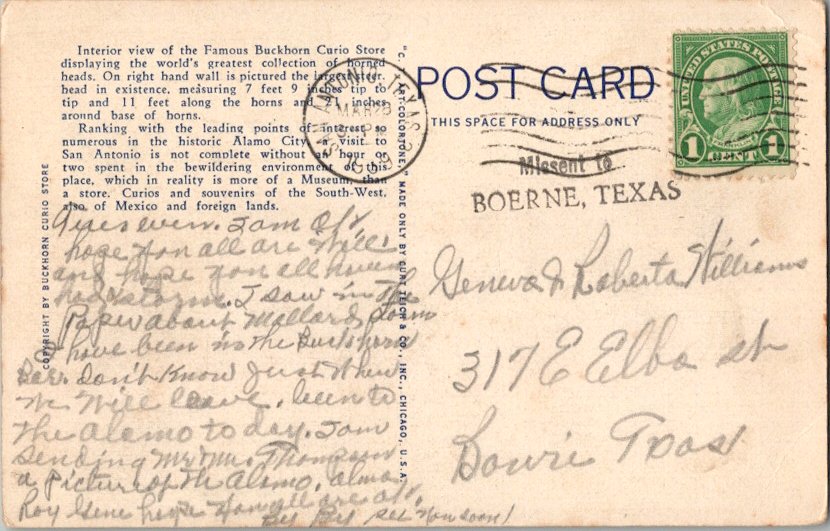 Interior view of the Famous Buckhorn Curio Store
displaying the world's greatest collection of horned
heads. On right hand wall is pictured the largest steer
head in existence, measuring 7 feet 9 inches tip to
tip and 11 feet along the horns and 21 inches
around base of horns.
Ranking with the leading points of interest so
numerous in the historic Alamo City a visit to
San Antonio is not complete without an hour or
two spent in the bewildering environment of this
place, which in reality is more of a Museum than
a store. Curios and souvenirs of the South-West,
also of Mexico and foreign lands.
COPYRIGHT BY BUCKHORN CURIO STORE
even. I am O.K
hope you all are well
and hope you all haven
had storm. I saw in the
Paper about Mallard storm
I have been in the Buckhorn
Bar. Don't Know Just When
We Will leave. been to
the Alamo to day. I am
Sending Mr Mrs. Thompson
a Picture of the Alamo.
Roy Gene hope you all are O.K.
By By see you soon!
"C. T. ART-COLORTONE" MADE ONLY BY CURT TEICH & CO., INC., CHICAGO, U.S.A.
POST CARD
THIS SPACE FOR ADDRESS ONLY
SAN ANTONIO, TEXAS
MAR 28
PM
UNITED STATES POSTAGE
1 CENT 1
Missent to
BOERNE, TEXAS
Geneva & Roberta Williams
317 E Elba st
Bowie Texas